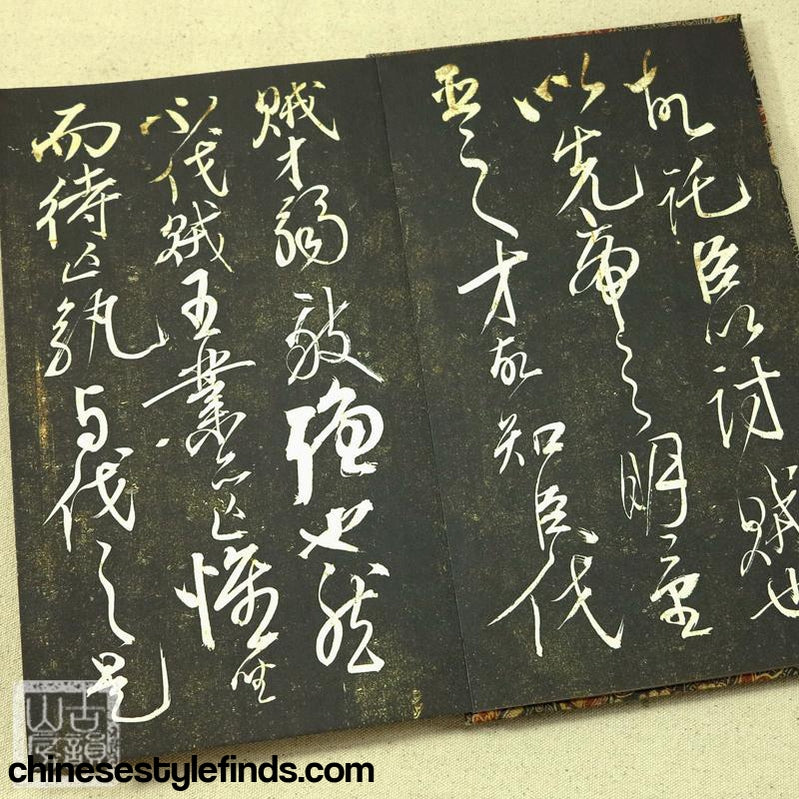 故託臣以討賊也
以先帝之明量
臣之才故知臣伐
賊才弱敵強也然
不伐賊王業亦亡惟坐
而待亡孰与伐之是
古韻山房
chinesestylefinds.com